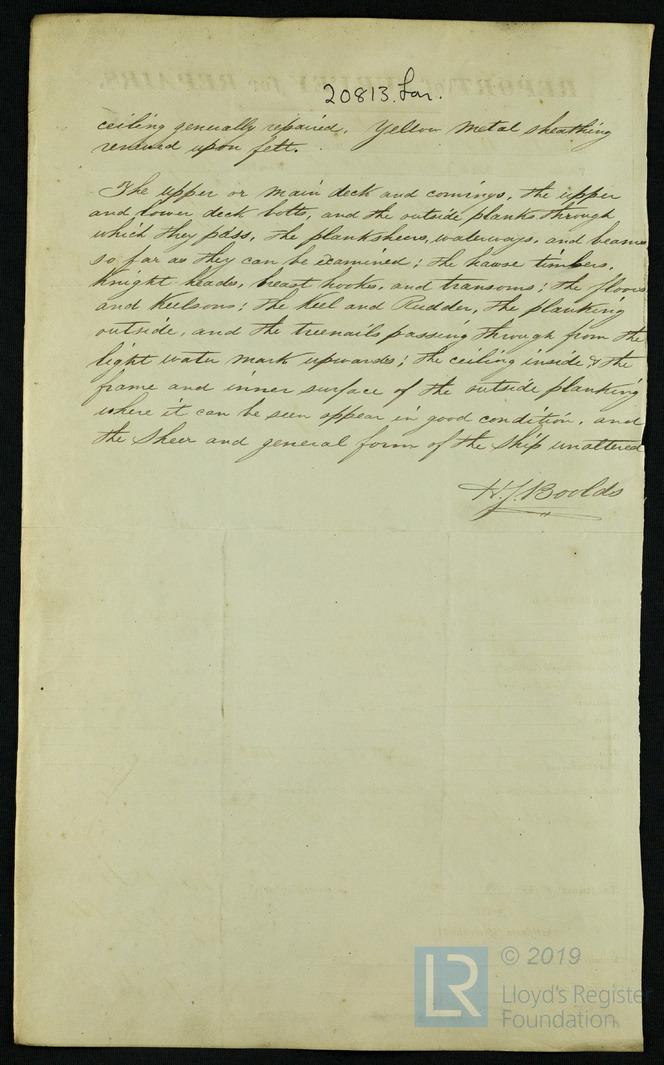 20813. For.
ceiling generally repaired. Yellow Metal sheathing
renewed upon felt.
The upper or main deck and comings, the upper
and lower deck bolts, and the outside planks through
which they pass, the planksheers, waterways, and beams
so far as they can be examined; the hawse timbers,
Knight heads, breast hooks, and transoms; the floors
and Keelsons; the Keel and Rudder, the planking
outside, and the treenails passing through from the
light water mark upwards; the ceiling inside & the
frame and inner surface of the outside planking
where it can be seen appear in good condition, and
the Sheer and general form of the Ship unaltered
H.J. Boolds
LR © 2019
Lloyd's Register
Foundation